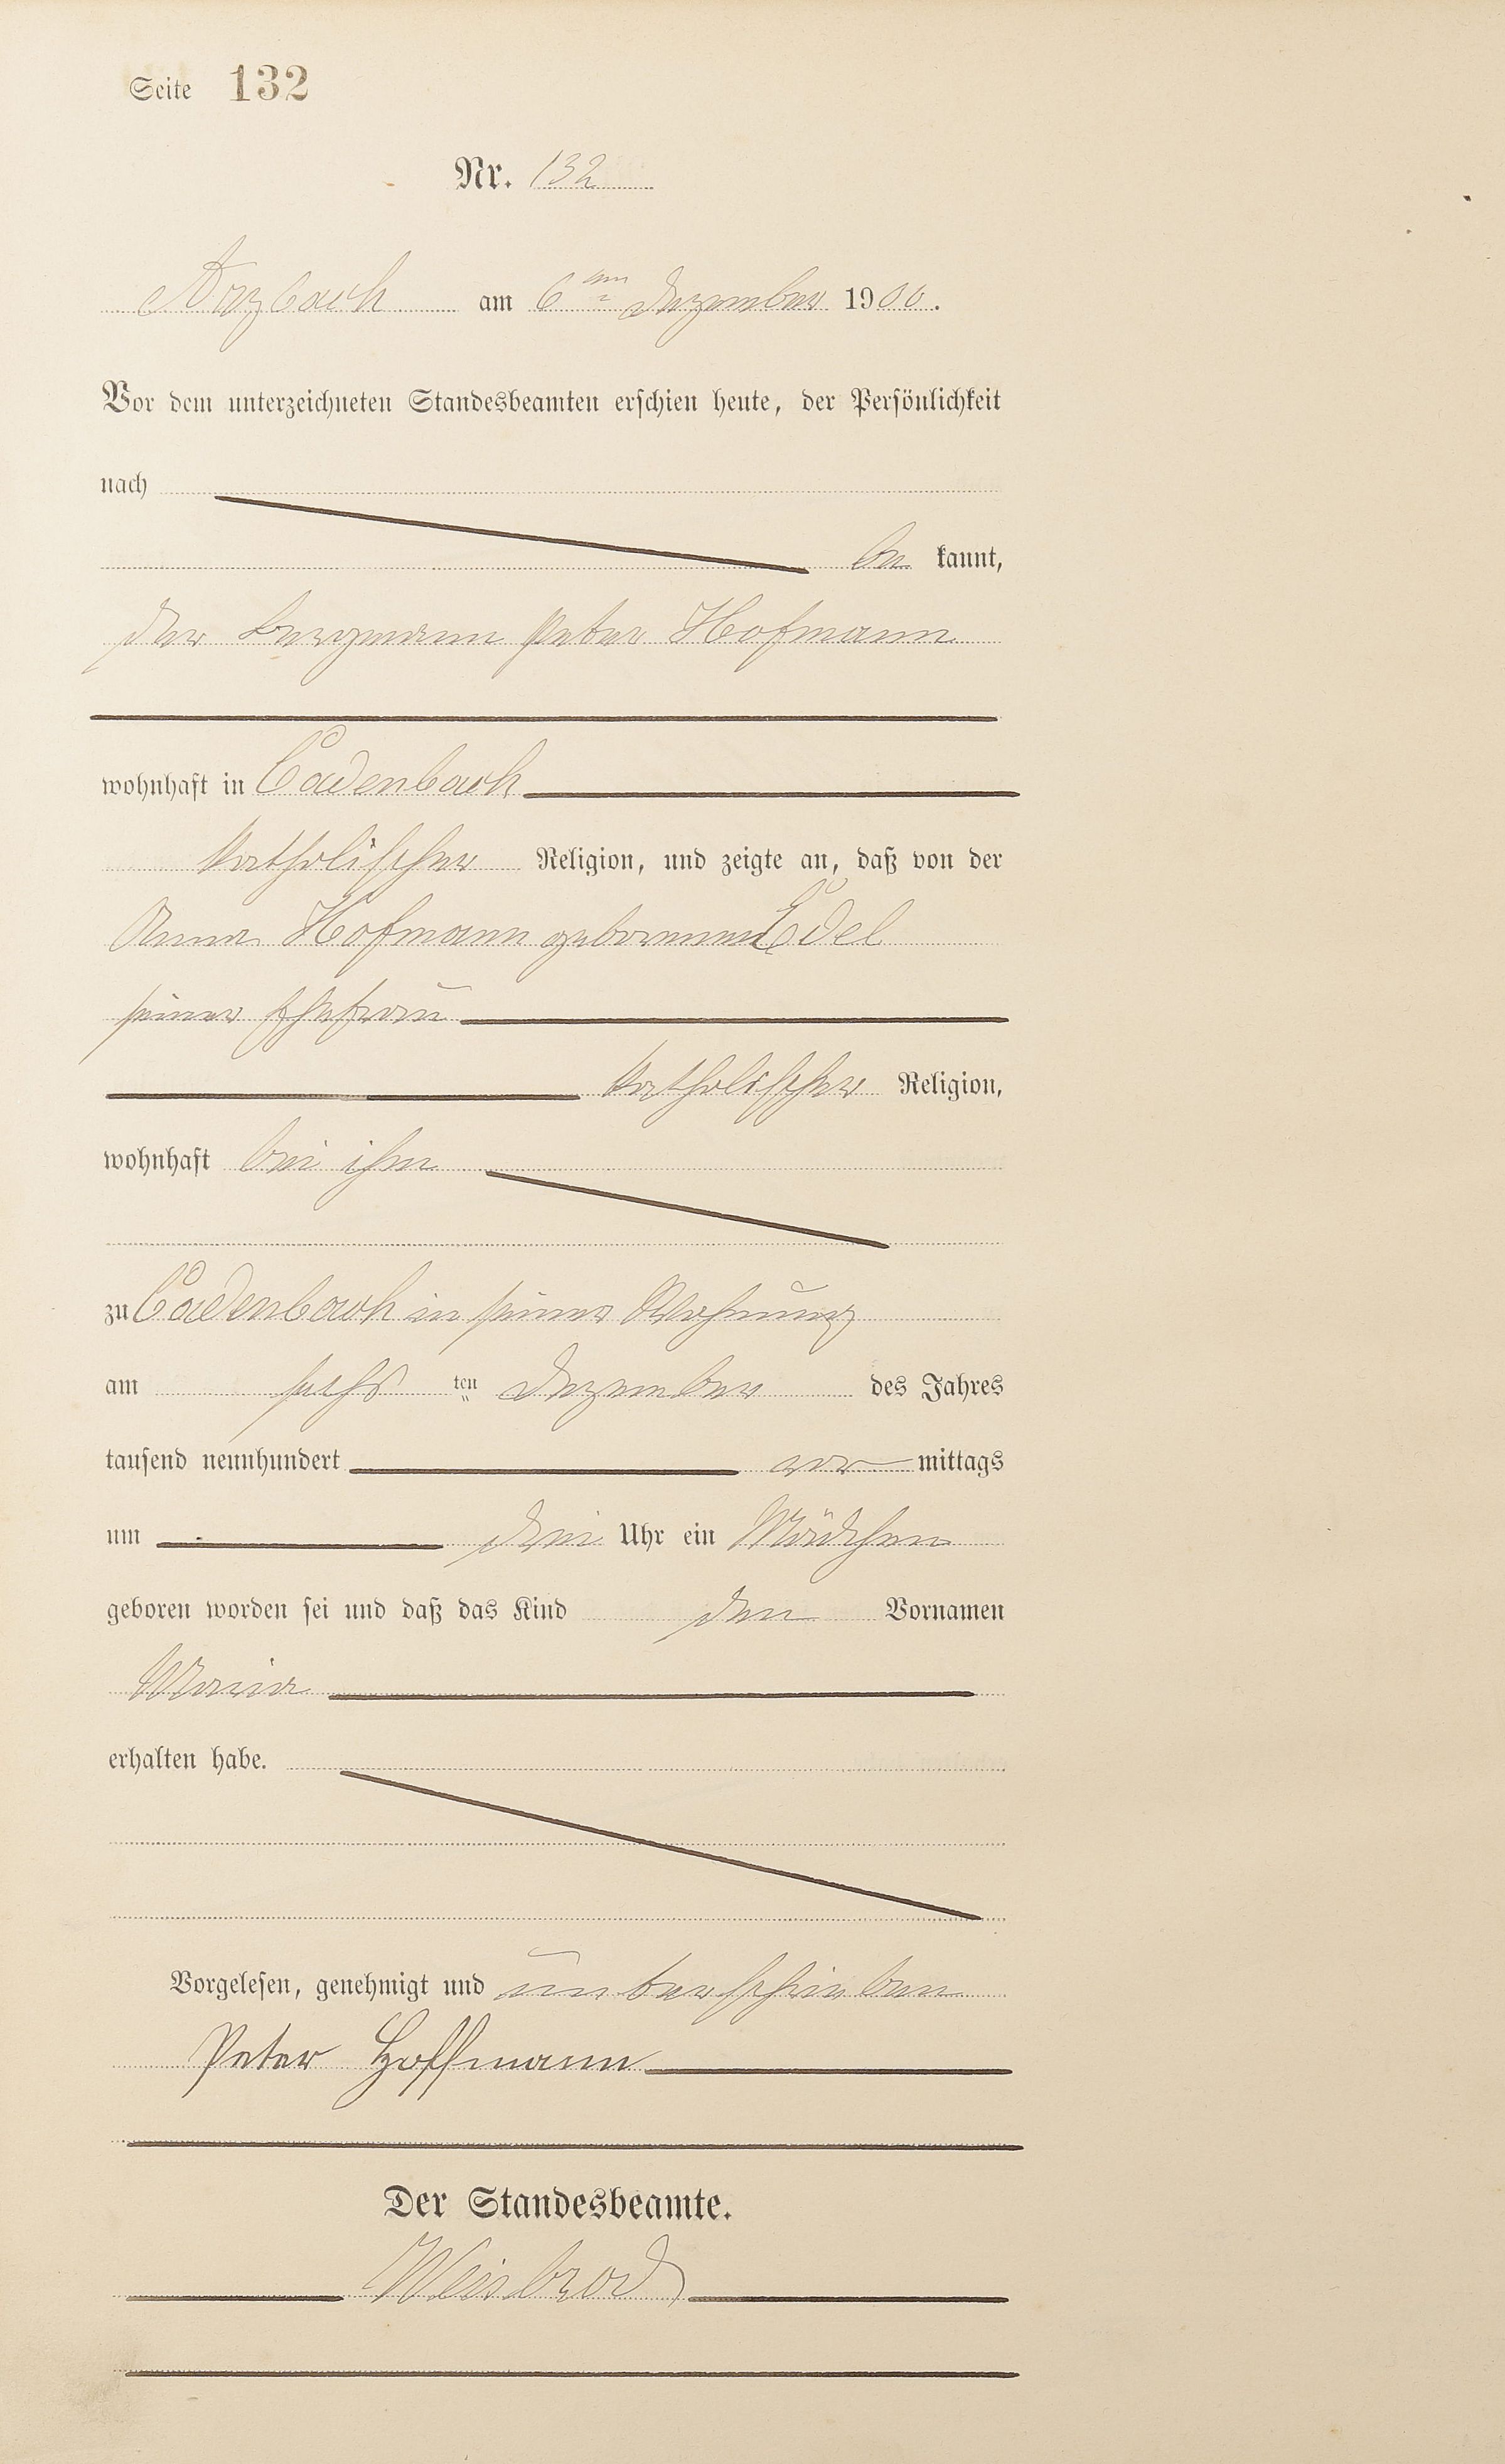 Seite 132
Nr. 132
Arzbach am 6ten Dezember 1900.
Vor dem unterzeichneten Standesbeamten erschien heute, der Persönlichkeit
nach
be kannt,
der Bergmann Peter Hofmann
wohnhaft in Cadenbach
katholischer Religion, und zeigte an, daß von der
Anna Hofmann geborenen Edel
seiner Ehefrau
katholischer Religion,
wohnhaft bei ihm
zu Cadenbach in seiner Wohnung
am sechs ten Dezember des Jahres
tausend neunhundert vor mittags
um drei Uhr ein Mädchen
geboren worden sei und daß das Kind den Vornamen
Maria
erhalten habe.
Vorgelesen, genehmigt und unterschrieben
Peter Hoffmann
Der Standesbeamte.
Weisbrod